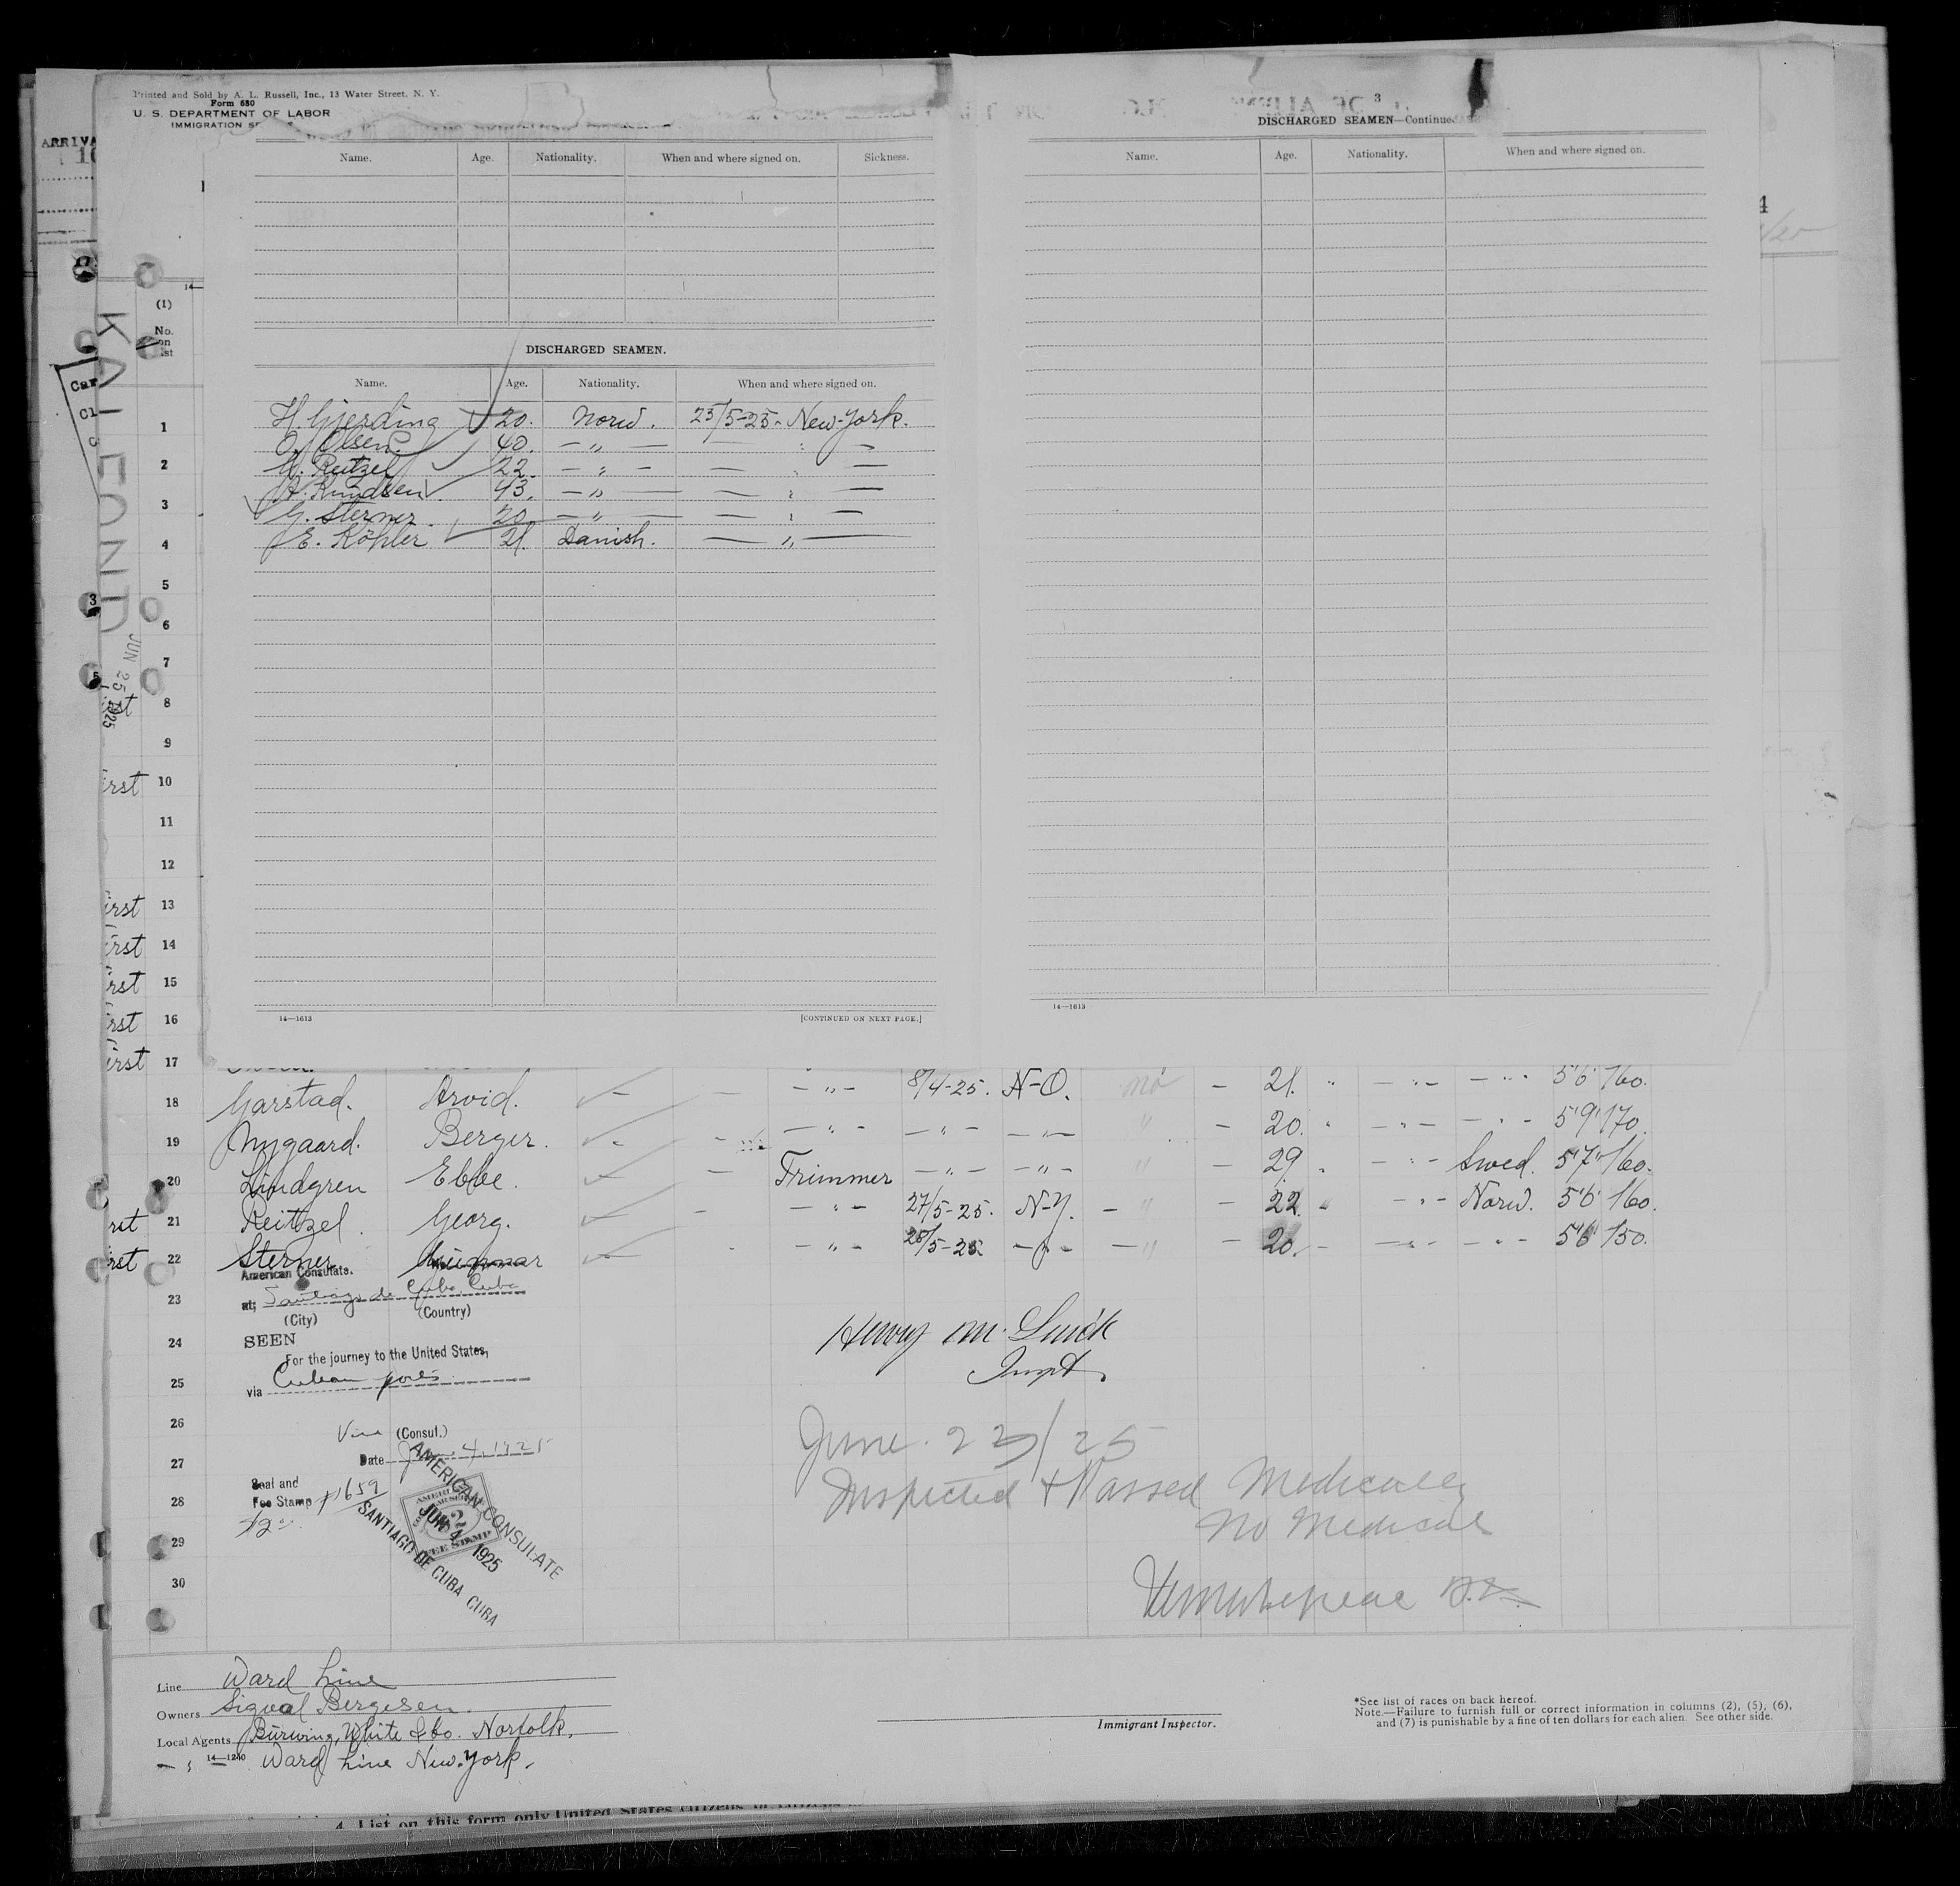 Printed and Sold by A. L. Russell, Inc., 13 Water Street, N. Y.
Form 680
U. S. DEPARTMENT OF LABOR
IMMIGRATION
ARRIVA
3
DISCHARGED SEAMEN—Continued
Name. Age. Nationality. When and where signed on. Sickness.
Name. Age. Nationality. When and where signed on.
4
14—
(1)
No. on
KALFOND
JUN 25 1925
DISCHARGED SEAMEN.
Name. Age. Nationality. When and where signed on.
H. Gjerding 20. Norw. 23/5-25- New-York.
O. Olsen. 40. — " — — " —
G. Reitzel 22. — " — — " —
A. Knudsen 43. — " — — " —
G. Sterner 20 — " — — " —
E. Köhler 21. Danish. — " —
1
2
3
4
5
6
7
8
9
rst 10
11
12
irst 13
irst 14
irst 15
irst 16
irst 17
14—1613 [CONTINUED ON NEXT PAGE.]
14—1613
18 Garstad. Arvid. — " — 8/4-25. N-O. no — 21. " — " — — " — 5'6' 160.
19 Nygaard. Berger. — " — — " — — " — " — 20. " — " — — " — 5'9' 170.
20 Lindgren Ebbe. Trimmer — " — — " — " — 29. " — " — Swed. 5'7" 160.
rst 21 Reitzel. Georg. — " — 27/5-25. N-Y. — " — 22. " — " — Norw. 5'6' 160.
rst 22 Sterner Gunnar — " — 28/5-25. — " — — " — 20. — — " — — " — 5'6' 150.
American Consulate.
23 at; Santiago de Cuba, Cuba
(City) (Country)
24 SEEN
For the journey to the United States,
25 via Cuban ports
Henry M.
Inspt.
26 Vice (Consul.)
27 Date June 4, 1925
Seal and
28 Fee Stamp 1659
29 $2
30
AMERICAN CONSULATE
JUN 4 1925
SANTIAGO DE CUBA CUBA
2
FEE STAMP
June 23/25
Inspected & Passed Medically
No Medical
Line Ward Line
Owners Sigval Bergesen.
Local Agents Burwing, White & Co. Norfolk,
— " — 14—1240 Ward Line New-York.
Immigrant Inspector.
*See list of races on back hereof.
Note.—Failure to furnish full or correct information in columns (2), (5), (6),
and (7) is punishable by a fine of ten dollars for each alien. See other side.
4. List on this form only United States citizens or citizens